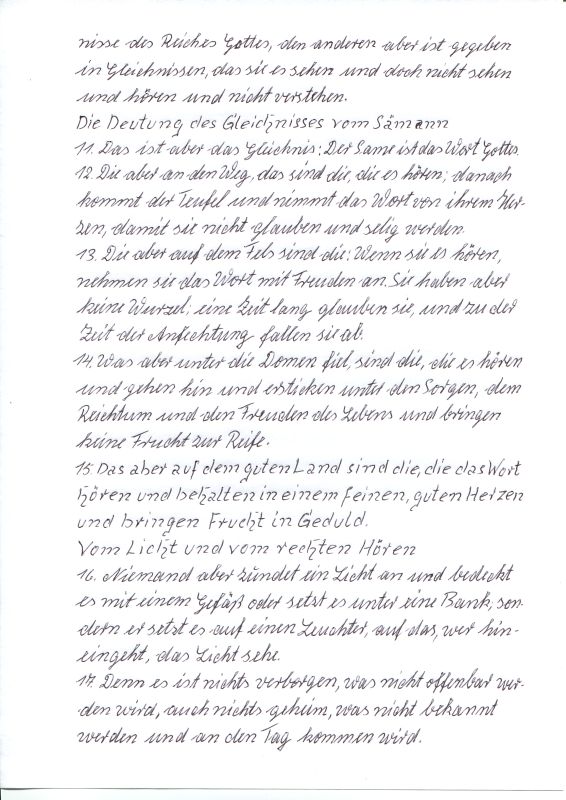 nisse des Reiches Gottes, den anderen aber ist gegeben
in Gleichnissen, das sie es sehen und doch nicht sehen
und hören und nicht verstehen.
Die Deutung des Gleichnisses vom Sämann
11. Das ist aber das Gleichnis: Der Same ist das Wort Gottes.
12. Die aber an den Weg, das sind die, die es hören; danach
kommt der Teufel und nimmt das Wort von ihrem Her-
zen, damit sie nicht glauben und selig werden.
13. Die aber auf dem Fels sind die: Wenn sie es hören,
nehmen sie das Wort mit Freuden an. Sie haben aber
keine Wurzel; eine Zeit lang glauben sie, und zu der
Zeit der Anfechtung fallen sie ab.
14. Was aber unter die Dornen fiel, sind die, die es hören
und gehen hin und ersticken unter den Sorgen, dem
Reichtum und den Freuden des Lebens und bringen
keine Frucht zur Reife.
15. Das aber auf dem guten Land sind die, die das Wort
hören und behalten in einem feinen, guten Herzen
und bringen Frucht in Geduld.
Vom Licht und vom rechten Hören
16. Niemand aber zündet ein Licht an und bedeckt
es mit einem Gefäß oder setzt es unter eine Bank, son-
dern er setzt es auf einen Leuchter, auf das, wer hin-
eingeht, das Licht sehe.
17. Denn es ist nichts verborgen, was nicht offenbar wer-
den wird, auch nichts geheim, was nicht bekannt
werden und an den Tag kommen wird.